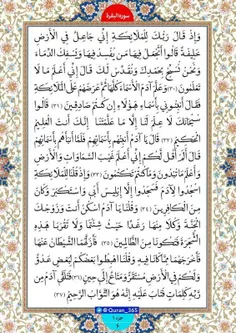 سورة البقرة
وَإِذْ قَالَ رَبُّكَ لِلْمَلَائِكَةِ إِنِّي جَاعِلٌ فِي الْأَرْضِ
خَلِيفَةً قَالُوا أَتَجْعَلُ فِيهَا مَنْ يُفْسِدُ فِيهَا وَيَسْفِكُ الدِّمَاءَ
وَنَحْنُ نُسَبِّحُ بِحَمْدِكَ وَنُقَدِّسُ لَكَ قَالَ إِنِّي أَعْلَمُ مَا لَا
تَعْلَمُونَ (۳۰) وَعَلَّمَ آدَمَ الْأَسْمَاءَ كُلَّهَا ثُمَّ عَرَضَهُمْ عَلَى الْمَلَائِكَةِ
فَقَالَ أَنْبِئُونِي بِأَسْمَاءِ هَؤُلَاءِ إِنْ كُنْتُمْ صَادِقِينَ (۳۱) قَالُوا
سُبْحَانَكَ لَا عِلْمَ لَنَا إِلَّا مَا عَلَّمْتَنَا إِنَّكَ أَنْتَ الْعَلِيمُ
الْحَكِيمُ (۳۲) قَالَ يَا آدَمُ أَنْبِئْهُمْ بِأَسْمَائِهِمْ فَلَمَّا أَنْبَأَهُمْ بِأَسْمَائِهِمْ
قَالَ أَلَمْ أَقُلْ لَكُمْ إِنِّي أَعْلَمُ غَيْبَ السَّمَاوَاتِ وَالْأَرْضِ
وَأَعْلَمُ مَا تُبْدُونَ وَمَا كُنْتُمْ تَكْتُمُونَ (۳۳) وَإِذْ قُلْنَا لِلْمَلَائِكَةِ
اسْجُدُوا لِآدَمَ فَسَجَدُوا إِلَّا إِبْلِيسَ أَبَى وَاسْتَكْبَرَ وَكَانَ
مِنَ الْكَافِرِينَ (۳۴) وَقُلْنَا يَا آدَمُ اسْكُنْ أَنْتَ وَزَوْجُكَ
الْجَنَّةَ وَكُلَا مِنْهَا رَغَدًا حَيْثُ شِئْتُمَا وَلَا تَقْرَبَا هَذِهِ
الشَّجَرَةَ فَتَكُونَا مِنَ الظَّالِمِينَ (۳۵) فَأَزَلَّهُمَا الشَّيْطَانُ عَنْهَا
فَأَخْرَجَهُمَا مِمَّا كَانَا فِيهِ وَقُلْنَا اهْبِطُوا بَعْضُكُمْ لِبَعْضٍ عَدُوٌّ
وَلَكُمْ فِي الْأَرْضِ مُسْتَقَرٌّ وَمَتَاعٌ إِلَى حِينٍ (۳۶) فَتَلَقَّى آدَمُ مِنْ
رَبِّهِ كَلِمَاتٍ فَتَابَ عَلَيْهِ إِنَّهُ هُوَ التَّوَّابُ الرَّحِيمُ (۳۷)
@Quran_365
جزء ۱
۶